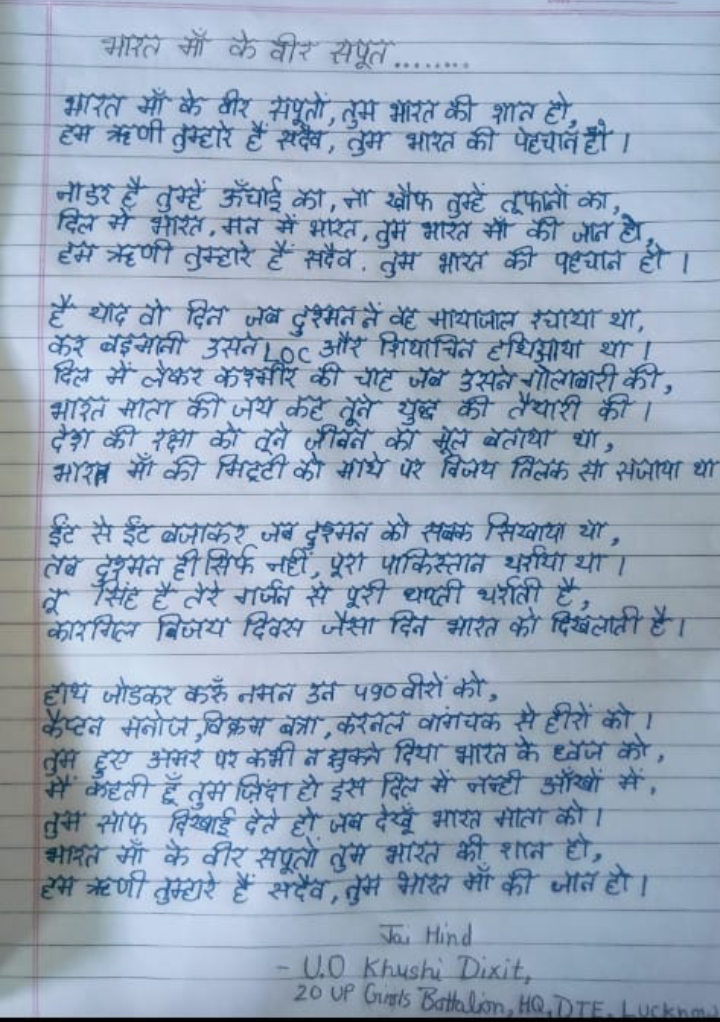 भारत माँ के वीर सपूत........
भारत माँ के वीर सपूतों, तुम भारत की शान हो,
हम ऋणी तुम्हारे हैं सदैव, तुम भारत की पेहचान हो ।
ना डर है तुम्हें ऊँचाई का, ना खौफ तुम्हें तूफानों का,
दिल में भारत, मन में भारत, तुम भारत माँ की जान हो,
हम ऋणी तुम्हारे हैं सदैव, तुम भारत की पहचान हो ।
है याद वो दिन जब दुश्मन ने वह मायाजाल रचाया था,
कर बेइमानी उसने LOC और सियाचिन हथिआया था ।
दिल में लेकर कश्मीर की चाह जब उसने गोलाबारी की,
भारत माता की जय कह तूने युद्ध की तैयारी की ।
देश की रक्षा को तूने जीवन का मूल बताया था,
भारत माँ की मिट्टी को माथे पर विजय तिलक सा सजाया था
ईंट से ईंट बजाकर जब दुश्मन को सबक सिखाया था,
तब दुश्मन ही सिर्फ नहीं, पूरा पाकिस्तान थर्राया था ।
तू सिंह है तेरे गर्जन से पूरी धरती थर्राती है,
कारगिल विजय दिवस जैसा दिन भारत को दिखलाती है ।
हाथ जोडकर करूँ नमन उन ५९० वीरों को,
कैप्टन मनोज, विक्रम बत्रा, करनल वांगचक से हीरों को ।
तुम हुए अमर पर कभी न झुकने दिया भारत के ध्वज को,
मैं कहती हूँ तुम ज़िंदा हो इस दिल में नन्ही आँखों में,
तुम साफ दिखाई देते हो जब देखूँ भारत माता को ।
भारत माँ के वीर सपूतों तुम भारत की शान हो,
हम ऋणी तुम्हारे हैं सदैव, तुम भारत माँ की जान हो ।
Jai Hind
- U.O Khushi Dixit,
20 UP Girls Battalion, HQ, DTE, Lucknow